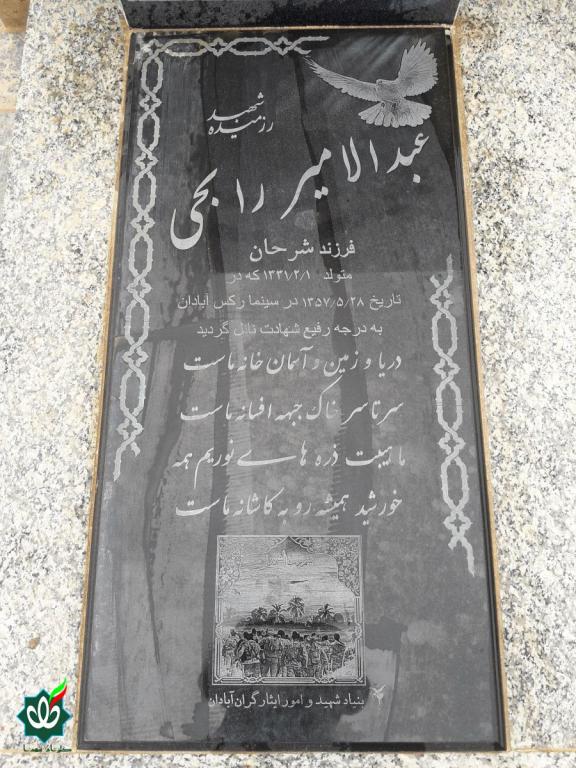 شهید
رزمنده
عبدالامیر رابحی
فرزند شرحان
متولد ۱۳۳۱/۲/۱ که در
تاریخ ۱۳۵۷/۵/۲۸ در سینما رکس آبادان
به درجه رفیع شهادت نائل گردید
دریا و زمین و آسمان خانه ماست
سرتاسر خاک جبهه افسانه ماست
ما هیبت ذره های نوریم همه
خورشید همیشه رو به کاشانه ماست
بنیاد شهید و امور ایثارگران آبادان